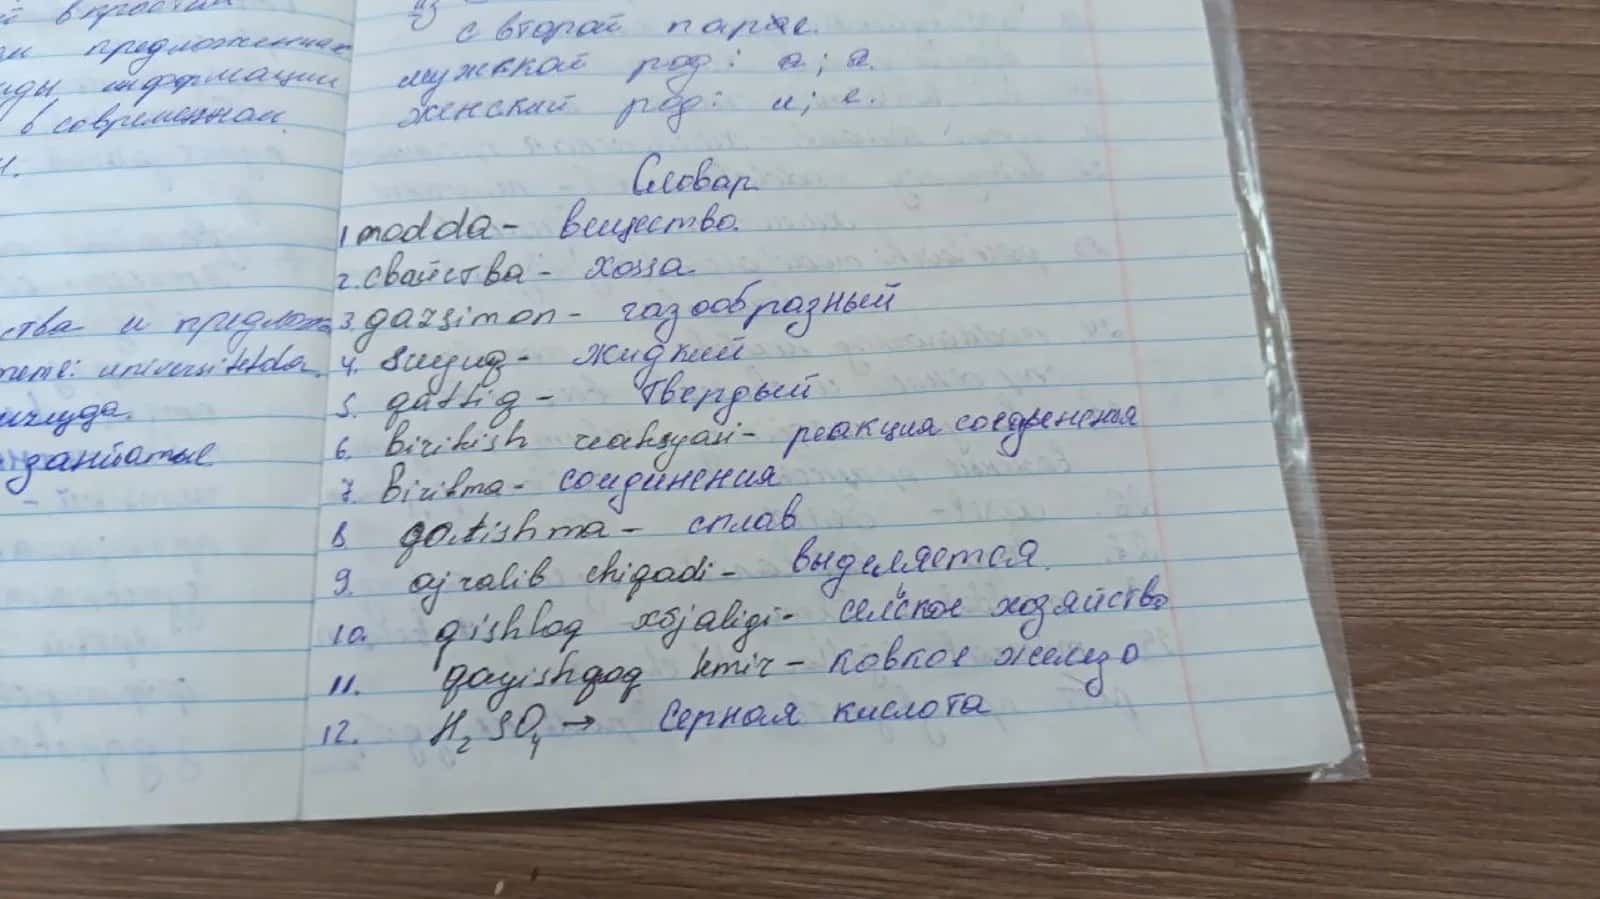 в простых
предложениях
информации
в современном
ства и предлож
теме: universitetda
занятые
с второй парые.
мужккой род: а; я.
женский род: и; е.
Словар
1 modda - вещество.
2. свайства - xossa
3. gazsimon - газообразный
4. suyuq - жидкий
5. qattiq - твердый
6. Birikish reaksyasi - реакция соединения
7. Birikma - соединения
8 qotishma - сплав
9. ajralib chiqadi - выделяется.
10. qishloq xojaligi - сельское хозяйство
11. qayishqoq temir - ковкое железо
12. H₂SO₄ → Серная кислота